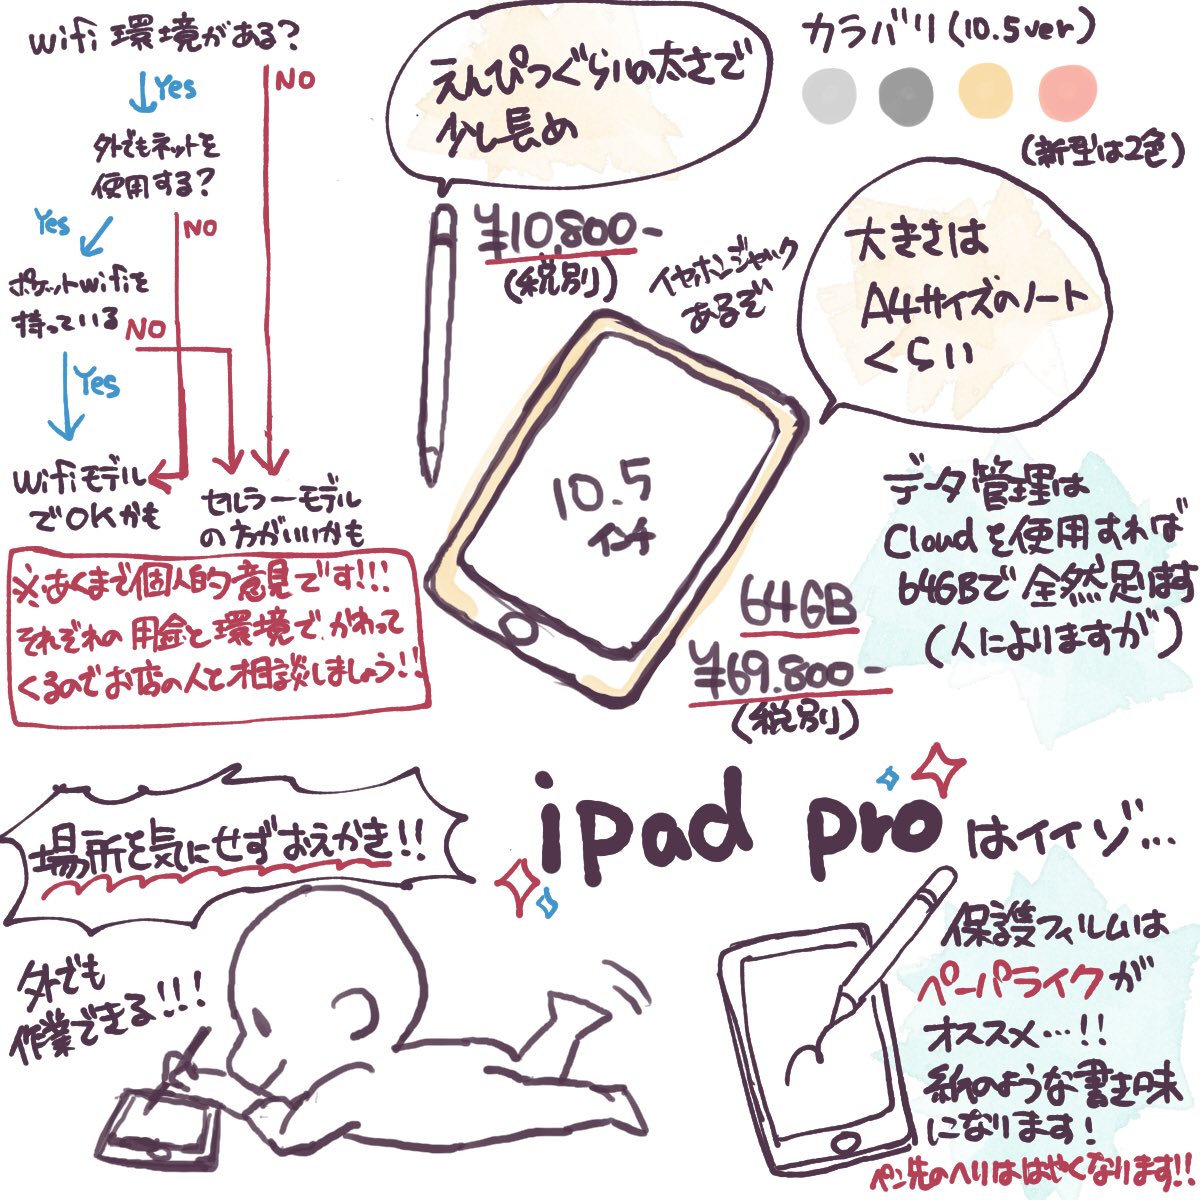 wifi 環境がある?
Yes
NO
外でもネットを
使用する?
Yes
NO
ポケットwifiを
持っている
NO
Yes
wifiモデル
でOKかも
セルラーモデル
の方がいいかも
※あくまで個人的意見です!!!
それぞれの用金と環境でかわって
くるのでお店の人と相談しましょう!!
えんぴつぐらいの太さで
少し長め
¥10,800-
(税別)
カラバリ(10.5ver)
(新型は2色)
イヤホンジャック
あるぞ
大きさは
A4サイズのノート
くらい
10.5
インチ
64GB
¥69.800-
(税別)
データ管理は
Cloudを使用すれば
64GBで全然足ります
(人によりますが)
場所を気にせずおえかき!!
外でも
作業できる!!!
ipad proはイイゾ…
保護フィルムは
ペーパライクが
オススメ…!!
紙のような書き味
になります!
ペン先のヘリははやくなります!!